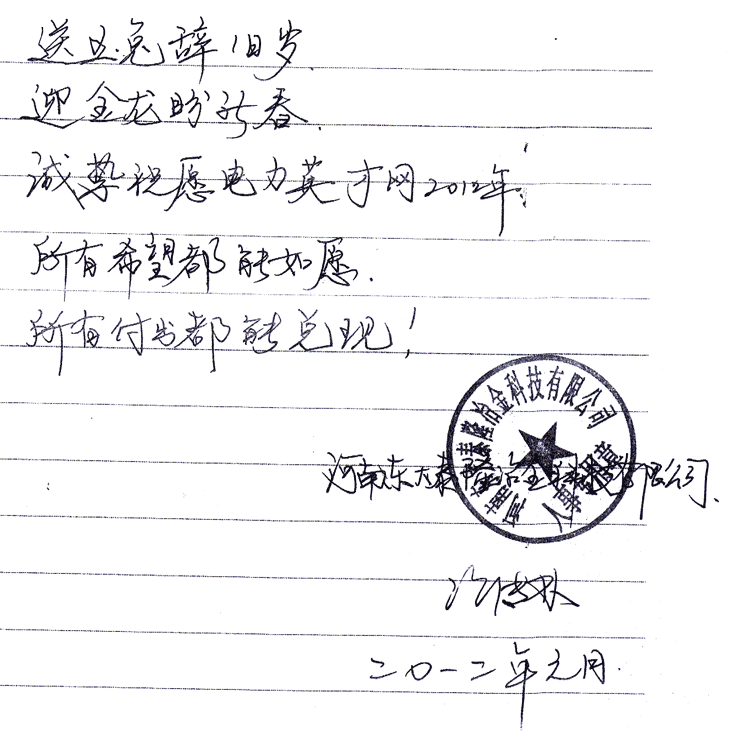 送玉兔辞旧岁.
迎金龙盼新春.
诚挚祝愿电力英才网2012年:
所有希望都能如愿.
所有付出都能兑现!
冶金科技有限公司
人事专用章
河南东大泰隆冶金科技有限公司.
二〇一二年元月.